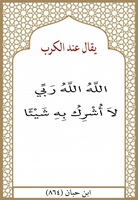 يقال عند الكرب
اللَّهُ اللَّهُ رَبِّي
لاَ أُشْرِكُ بِهِ شَيْئًا
ابن حبان (٨٦٤)